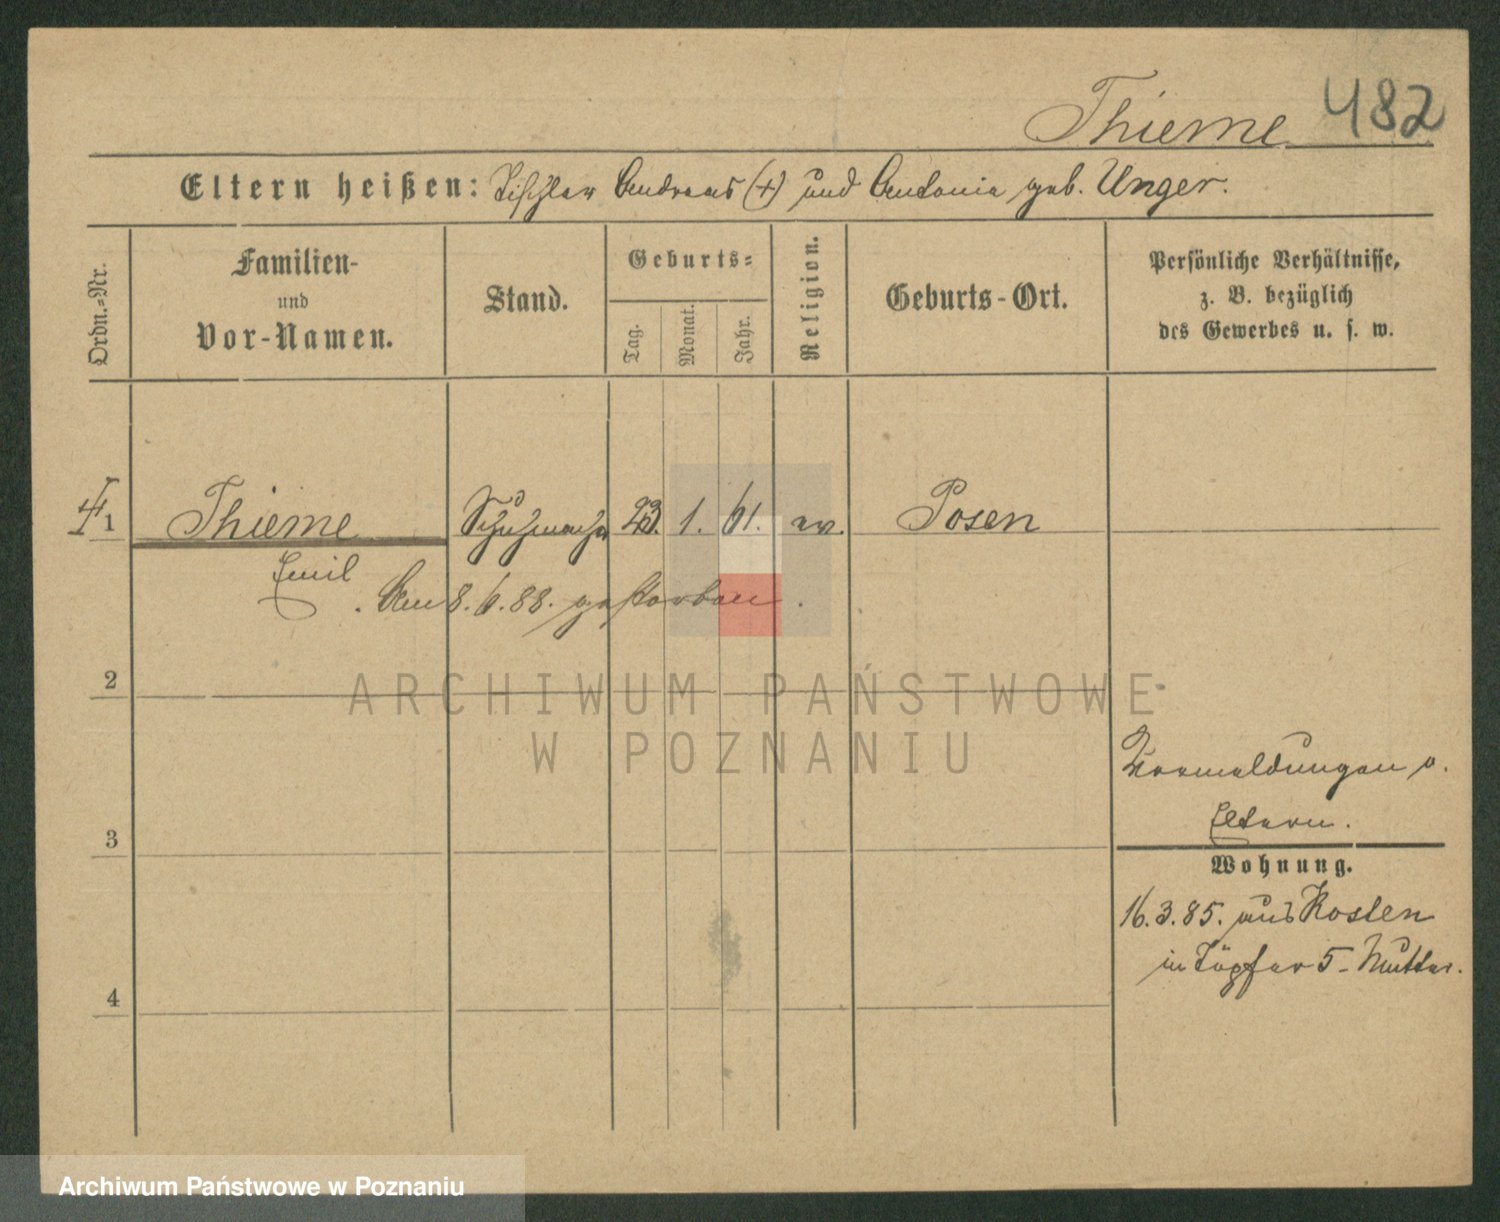 Thieme 482
Eltern heißen: Tischler Andreas (+) und Antonie geb. Unger.
Ordn.-Nr.
Familien-
und
Vor-Namen.
Stand.
Geburts-
Tag.
Monat.
Jahr.
Religion.
Geburts-Ort.
Persönliche Verhältnisse,
z. B. bezüglich
des Gewerbes u. s. w.
1 Thieme Schuhmacher 23. 1. 61. ev. Posen
Emil
Am 8.6.88. gestorben.
2
ARCHIWUM PAŃSTWOWE
W POZNANIU
Vermeldungen v.
Eltern.
3
Wohnung.
16.3.85. aus Kosten
in Töpfer 5 - Mutter.
4
Archiwum Państwowe w Poznaniu